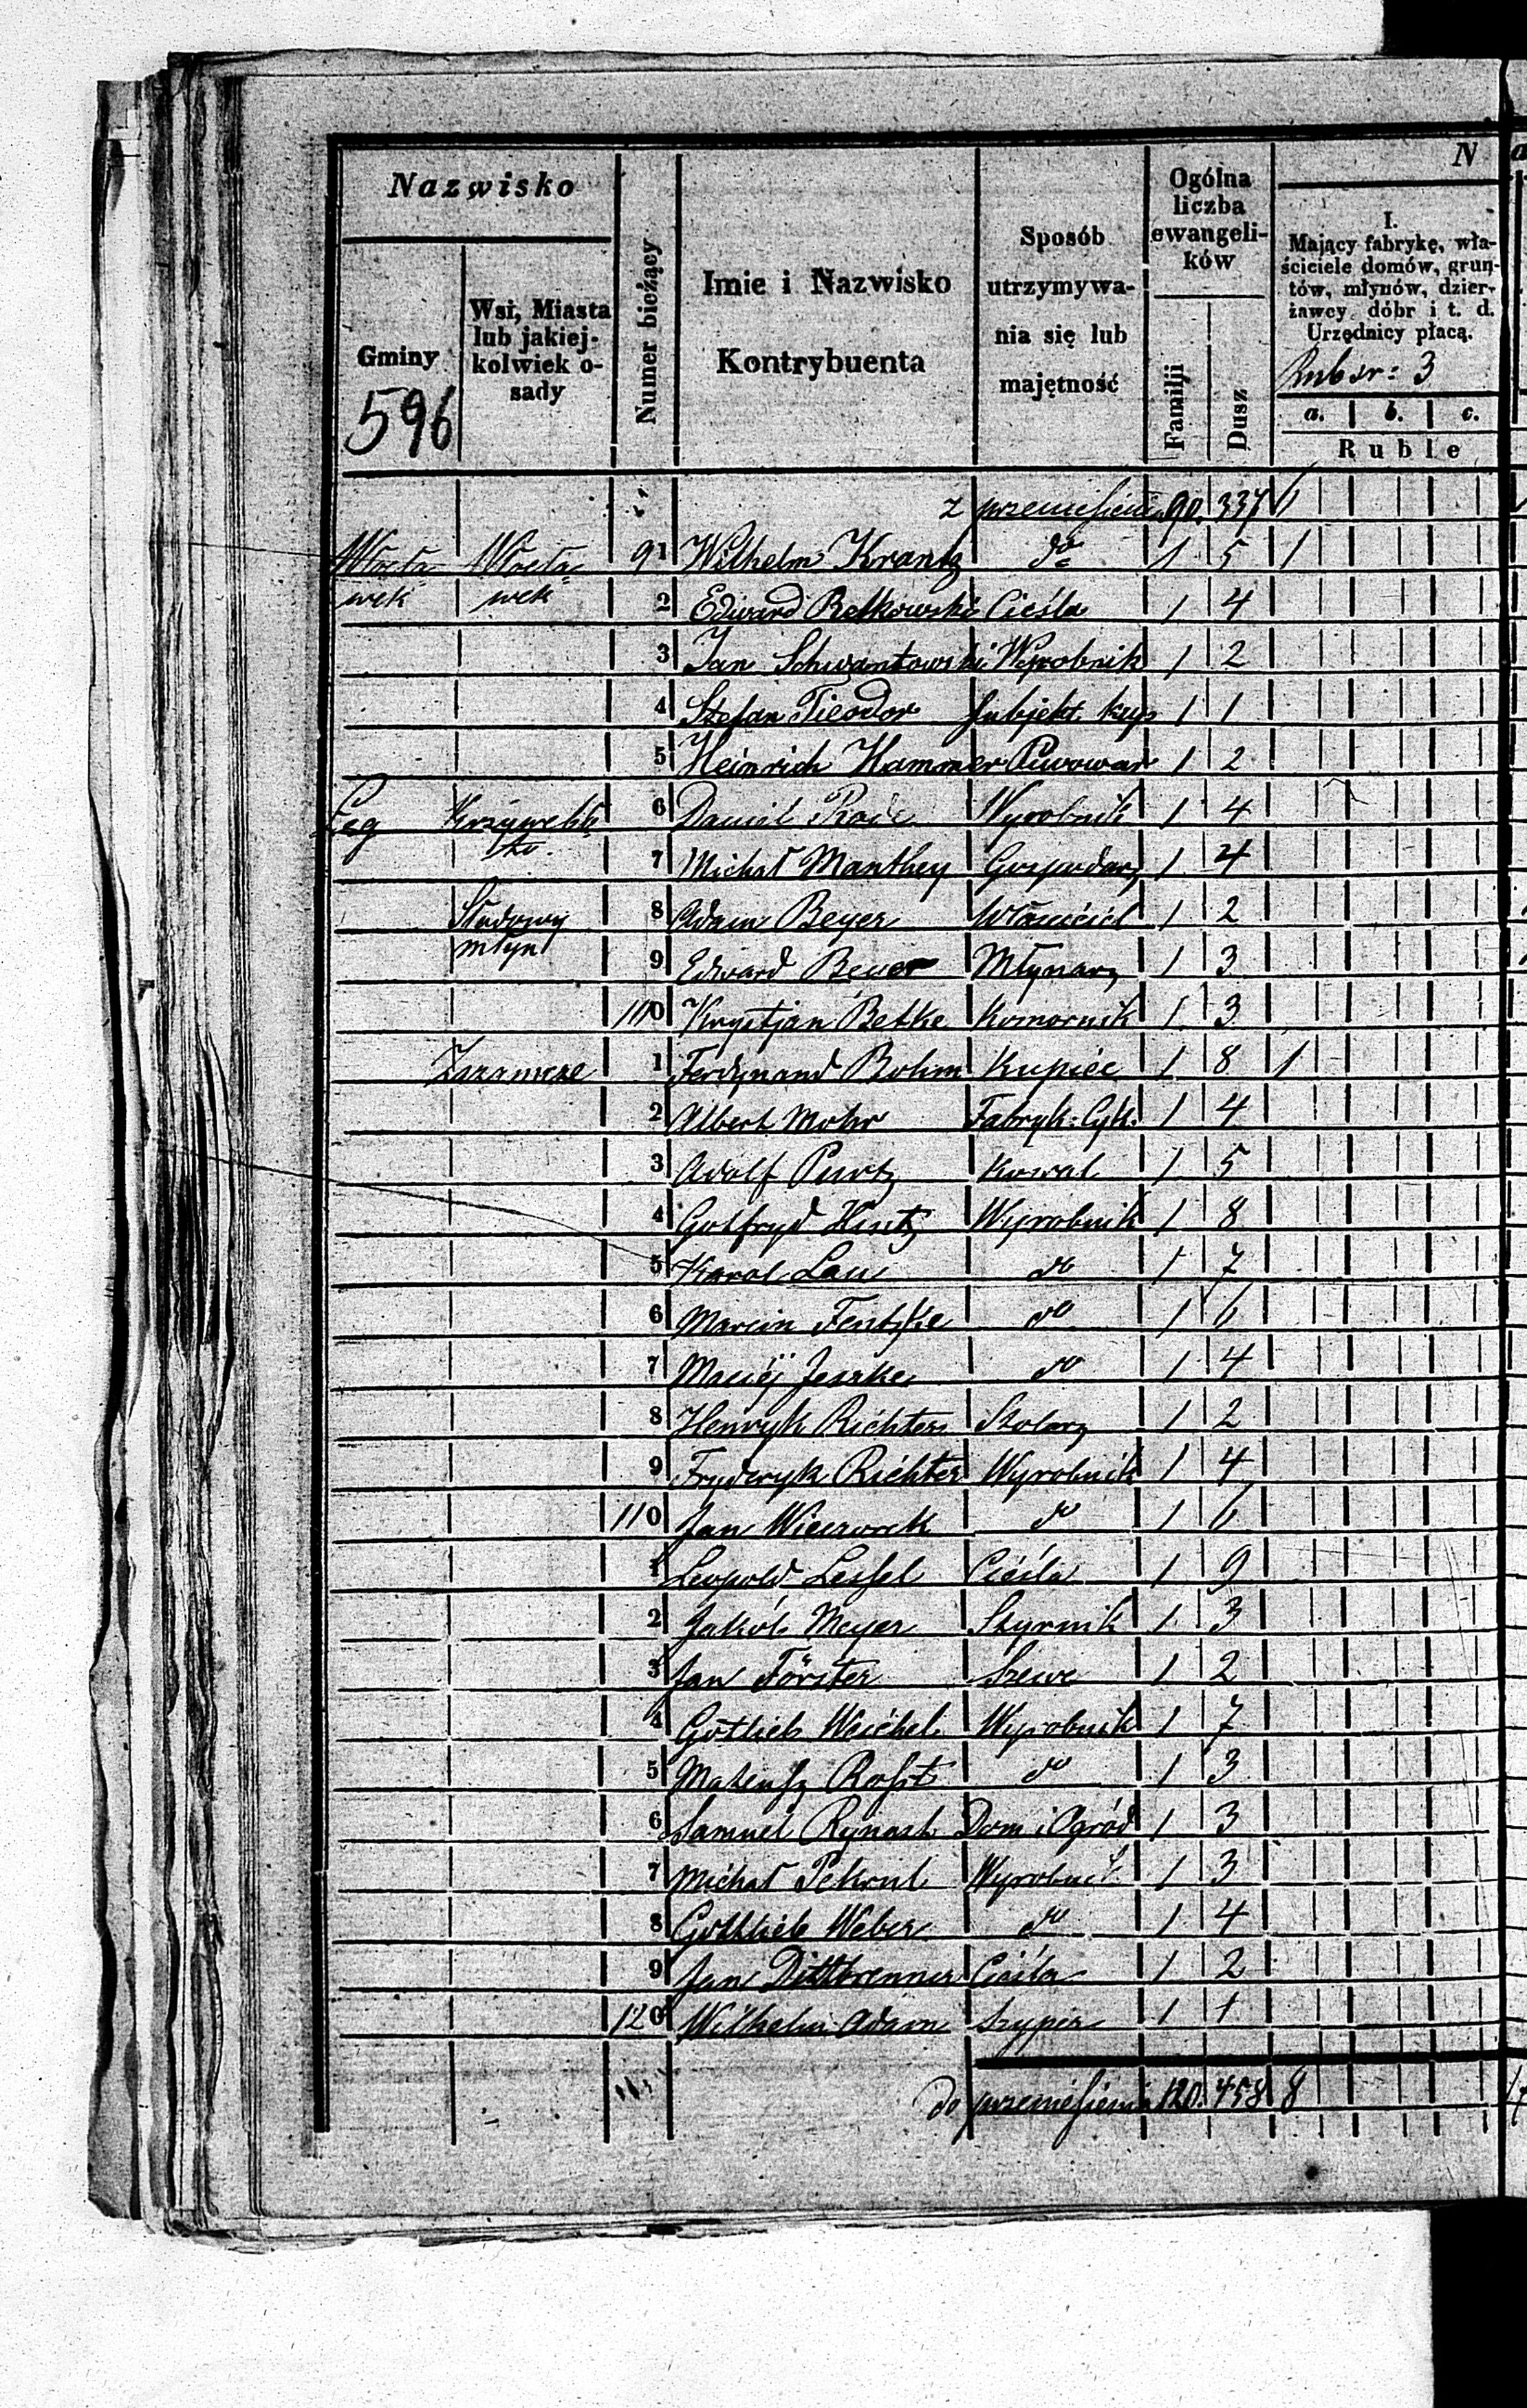 Nazwisko
Gminy
Wsi, Miasta lub jakiej-kolwiek o-sady
Numer bieżący
Imie i Nazwisko Kontrybuenta
Sposób utrzymywa-nia się lub majętność
Ogólna liczba ewangeli-ków
Familji
Dusz
N
I.
Mający fabrykę, wła-
ściciele domów, grun-
tów, młynów, dzier-
żawcy dóbr i t. d.
Urzędnicy płacą.
Rub sr: 3
a. b. c.
Ruble
596
z przeniesienia 90. 337
Włocła- Włocła- 91 Wilhelm Krantz do 1 5 1
wek wek 2 Edward Retkowski Cieśla 1 4
3 Jan Schwantowski Wyrobnik 1 2
4 Stefan Tieodor Subjekt kup 1 1
5 Heinrich Hammer Piwowar 1 2
Łęg 6 Daniel Rode Wyrobnik 1 4
7 Michał Manthey Gospodarz 1 4
8 Adam Beyer Właściciel 1 2
młyn 9 Edward Beyer Młynarz 1 3
0 Krystjan Betke Komornik 1 3
Zazamcze 1 Ferdynand Bohm Kupiec 1 8 1
2 Albert Mohr Fabryk. Cyk. 1 4
3 Adolf Purtz Kowal 1 5
4 Gotfryd Hintz Wyrobnik 1 8
5 Karol Lau do 1 7
6 Marcin Fentzke do 1 6
7 Maciéj Jeszke do 1 4
8 Henryk Richter Stolarz 1 2
9 Fryderyk Richter Wyrobnik 1 4
110 Jan Wieczorek do 1 6
1 Leopold Lessel Cieśla 1 9
2 Jakób Meyer Sztyrnik 1 3
3 Jan Förster Szewc 1 2
4 Gotlieb Weichel Wyrobnik 1 7
5 Mateusz Rosst do 1 3
6 Samuel Rynast Dom i Ogród 1 3
7 Michał Pekrul Wyrobnik 1 3
8 Gottlieb Weber do 1 4
9 Jan Dittbrenner Cieśla 1 2
120 Wilhelm Adam Szyper 1 1
do przeniesienia 120. 458 8